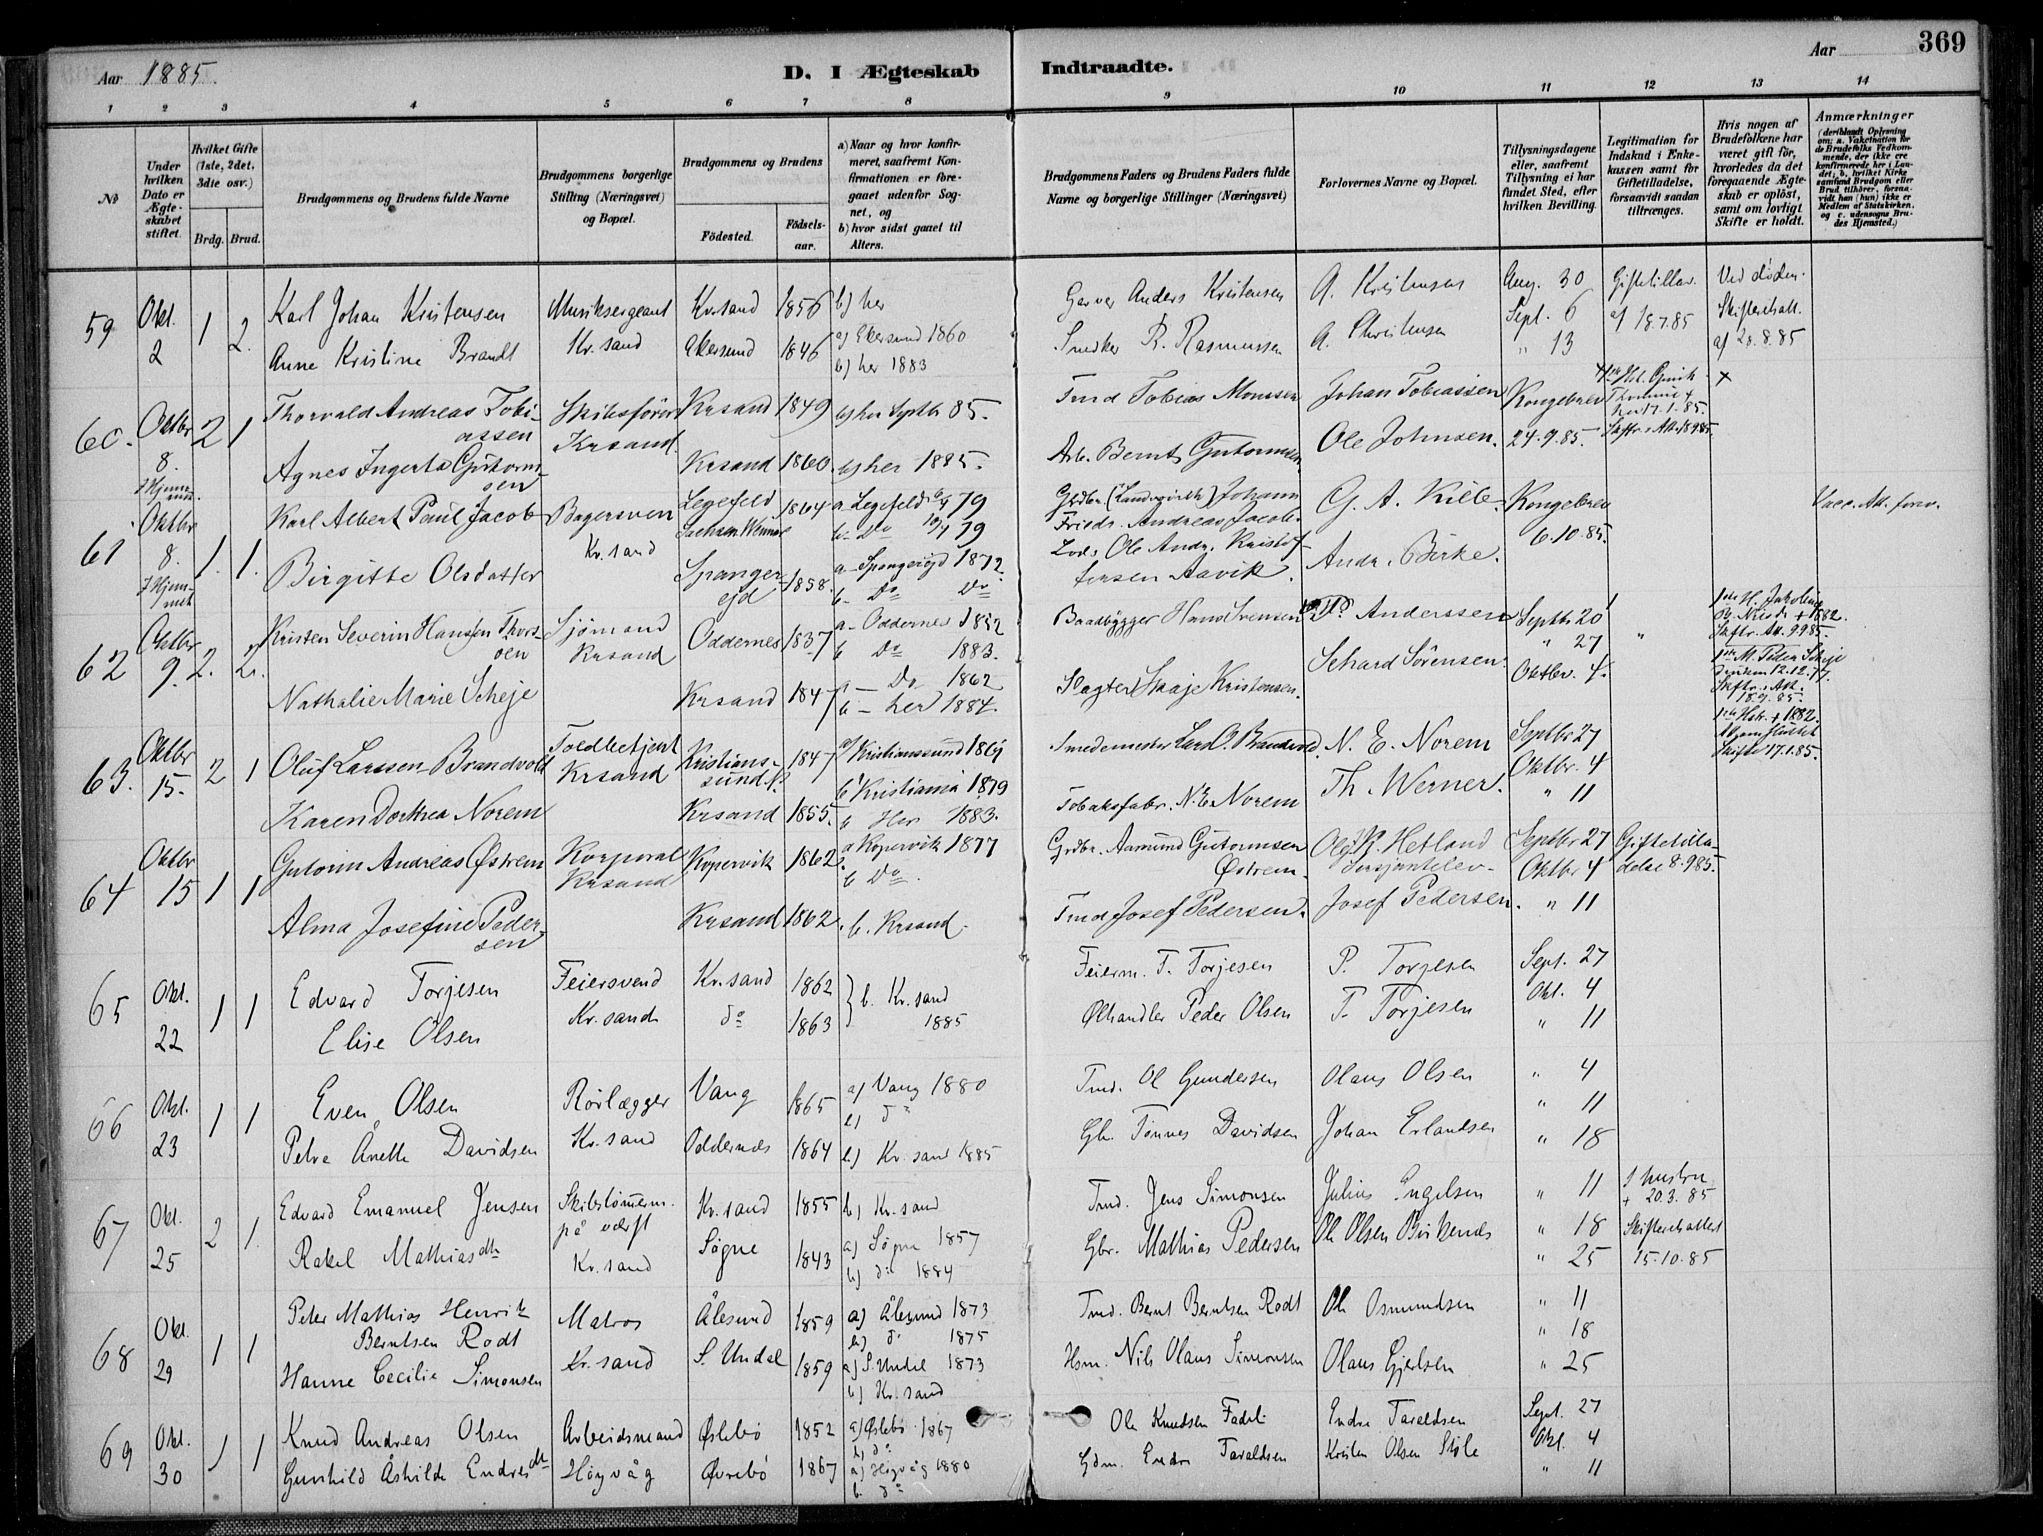 369
Aar 1885.
D. I Ægteskab Indtraadte.
Aar
1 2 3 4 5 6 7 8 9 10 11 12 13 14
№
Under hvilken Dato er Ægteskabet stiftet.
Hvilket Gifte (1ste, 2det, 3die osv.)
Brdg. Brud.
Brudgommens og Brudens fulde Navne
Brudgommens borgerlige Stilling (Næringsvei) og Bopæl.
Brudgommens og Brudens
Fødested. Fødselsaar.
a) Naar og hvor konfirmeret, saafremt Konfirmationen er foregaaet udenfor Sognet, og
b) hvor sidst gaaet til Alters.
Brudgommens Faders og Brudens Faders fulde Navne og borgerlige Stillinger (Næringsvei)
Forlovernes Navne og Bopæl.
Tillysningsdagene eller, saafremt Tillysning ei har fundet Sted, efter hvilken Bevilling.
Legitimation for Indskud i Enkekassen samt for Giftetilladelse, forsaavidt saadan tiltrænges.
Hvis nogen af Brudefolkene har været gift før, hvorledes da det foregaaende Ægteskab er opløst, samt om lovligt Skifte er holdt.
Anmærkninger
59 Okt. 2 1 2.
Karl Johan Kristensen Musiksergeant Kr.sand 1856 b) her Garver Anders Kristensen A. Kristensen Aug. 30 Giftetillad. af 18.7.85 Ved døden.
Anne Kristine Brandt Kr.sand Ekersund 1846 a) Ekersund 1860 b) her 1883 Snedker R. Rasmussen A. Christensen Sept. 6 " 13 Skifteretsatt. af 20.8.85
60. Oktbr 8. I Hjemmet. 2 1
Thorvald Andreas Tobiassen Skibsfører Krsand Krsand 1849 b) her Septbr 85. Tmd Tobias Monsen Johan Tobiassen Kongebrev 24.9.85.
Agnes Ingerta Gutormsen Krsand 1860. b) her 1885. Arb. Bernt Gutormsen Ole Johnsen.
61 Oktbr 8. I Hjemmet 1. 1.
Karl Albert Paul Jacob Bagersvend Kr.sand Legefeld Sachsen Weimar 1864 a- Legefeld 79 b- Do 79 Gbr. (Landwirth) Johann Friedr. Andreas Jacob. G. A. Kille Kongebrev 6.10.85. Vacc. Att. forev.
Birgitte Olsdatter Spangereid 1858. a- Spangereid 1872. b. Do Do Lods Ole Andr. Kristoffersen Aavik. Andr. Birke.
62 Oktbr 9. 2. 2.
Kristen Severin Hanssen Thorssen Sjømand Krsand Oddernes 1837 a- Oddernes 1852 b Do 1883. Baadbygger Hans Svensen P. Anderssen Septbr 20 " 27
Nathalie Marie Scheje Krsand 1847 a - Do 1862 b - her 1884. Slagter Skaje Kristensen. Sehard Sörensen. Oktbr. 4.
63. Oktbr 15. 2 1
Oluf Larssen Brandvold Toldbetjent Krsand Kristianssund N. 1847 a/ Kristianssund 1861 b/ Kristiania 1879 Smedemester Lars O. Brandvold. N. E. Norem Septbr 27 1ste Hstr. + 1882. Skifte 17.1.85.
Karen Dorthea Norem Krsand 1855. b Her 1883. Tobaksfabr. N. E. Norem Th. Werner. Oktbr. 4 " 11
64 Oktbr 15 1 1
Gutorm Andreas Østrem Korporal Krsand Kopervik 1862. a Kopervik 1877 b Do. Grdbr. Aamund Gutormsen Østrem. Ole K. Hetland Sersjantelev- Septbr 27 Giftetilladelse 8.9 85.
Alma Josefine Pedersen Krsand 1862. b. Krsand. Tmd Josef Pedersen. Josef Pedersen. Oktbr 4 " 11
65 Okt. 22 1 1
Edvard Torjesen Feiersvend Kr.sand 1862 b. Kr.sand 1885 Feierm. T. Torjesen P. Torjesen Sept. 27
Elise Olsen Kr.sand do 1863 Ølhandler Peder Olsen T. Torjesen Okt. 4 " 11
66 Okt. 23 1 1
Even Olsen Rørlægger Vang 1865 a) Vang 1880 b) do Tmd. Ol Gundersen Olaus Olsen " 4 " 11
Petra Anette Davidsen Kr.sand Oddernes 1864 b.) Kr.sand 1885 Gbr. Tønnes Davidsen Johan Erlandsen " 18
67 Okt. 25 2 1.
Edvard Emanuel Jensen Skibstømrm. på værft Kr.sand 1855 b) Kr.sand Tmd. Jens Simonsen Julius Engelsen " 11 1 hustru + 20.3.85
Rakel Mathiasdtr Kr.sand Søgne 1843 a) Søgne 1857 b) do 1884 Gbr. Mathias Pedersen Ole Olsen Birkenes " 18 " 25 Skifteretsattest 15.10.85
68 Okt. 29 1 1
Peter Mathias Henrik Berntsen Rødt Matros Ålesund 1859 a) Ålesund 1873 b) do 1875 Tmd. Bernt Berntsen Rødt Ole Osmundsen " 11 " 18
Hanne Cecilie Simonsen Kr.sand S. Undal 1859 a) S. Undal 1873 b) Kr.sand Hsm. Nils Olaus Simonsen Olaus Gjertsen " 25
69 Okt. 30 1 1
Knud Andreas Olsen Arbeidsmand Øslebø 1852 a) Øslebø 1867 b) do Ole Knudsen Endre Taraldsen Sept. 27
Gunhild Åshilde Endresdtr Høgvåg Øvrebø 1867 a) Høgvåg 1880 b. do Gdm. Endre Taraldsen Kristen Olsen Støle Okt. 4 " 11